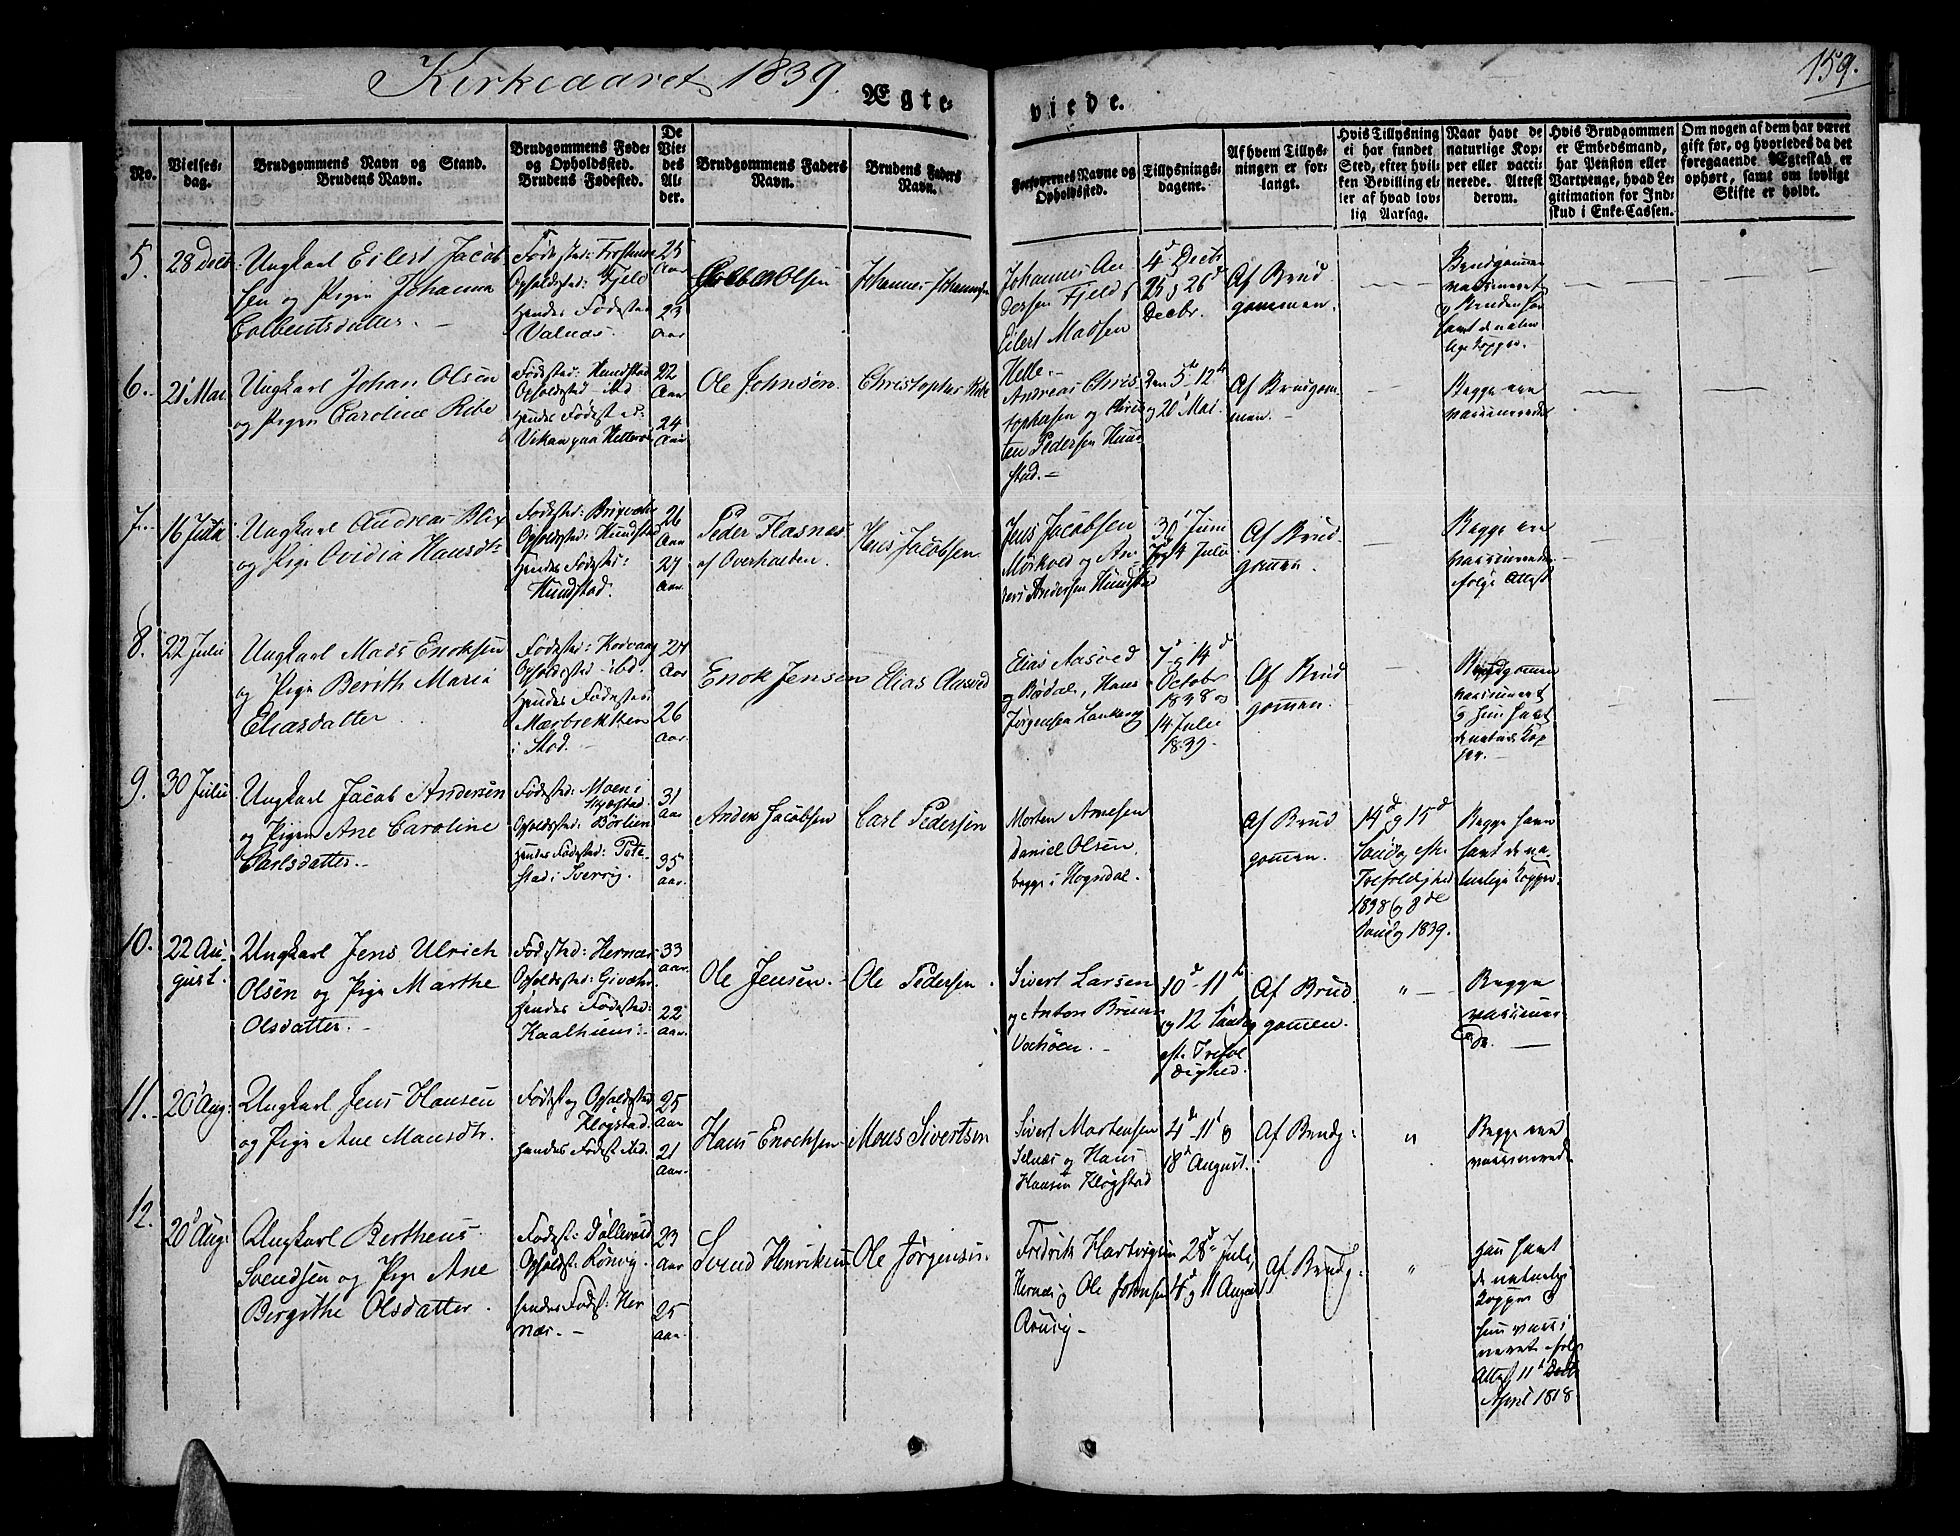 Kirkeaaret 1839.
159.
Ægte-
viede.
No.
Vielses-
dag.
Brudgommens Navn og Stand.
Brudens Navn.
Brudgommens Føde-
og Opholdssted.
Brudens Fødested.
De
Vie-
des
Al-
der.
Brudgommens Faders
Navn.
Brudens Faders
Navn.
Forlovernes Navne og
Opholdssted.
Tillysnings-
dagene.
Af hvem Tillys-
ningen er for-
langt.
Hvis Tillysning
ei har fundet
Sted, efter hvil-
ken Bevilling el-
ler af hvad lov-
lig Aarsag.
Naar havt de
naturlige Kop-
per eller vacci-
nerede. Attest
derom.
Hvis Brudgommen
er Embedsmand,
har Pension eller
Vartpenge, hvad Le-
gitimation for Ind-
skud i Enke-Cassen.
Om nogen af dem har været
gift før, og hvorledes da det
foregaaende Ægteskab er
ophørt, samt om lovligt
Skifte er holdt.
5.
28 Decbr
Ungkarl Eilert Jacob
sen og Pigen Johanna
Colbentsdatter. —
Fødested:
Opholdssted: Fjeld
Hendes Fødested
Valnæs.
25
Aar
23
Aar
Olsen
Johannes Johannesen
Johannes An
dersen Fjeld &
Eilert Madsen
Helle.
4d Decbr
25 og 26d
Decbr.
Af Brud
gommen.
Brudgommen
vaccineret
og Bruden har
havt de natur
lige Kopper.
6.
21 Mai
Ungkarl Johan Olsen
og Pigen Caroline Ribe
Fødested: Hundstad
Opholdssted ibd
Hendes Fødest
Vikan paa Hitteren
22
Aar
24
Aar
Ole Johnsen.
Christopher Ribe
Andreas Chris
tophersen og Chris
ten Pedersen Hund
stad. —
Den 5t 12t
og 20d Mai.
Af Brudgom
men.
Begge ere
vaccinerede
7.
16 Julii
Ungkarl Andreas Blix
og Pige Ovidia Hansdtr
Fødested: Brixvold
Opholdssted: Hundstad
Hendes Fødested:
Hundstad.
26
Aar
27
Aar.
Peder Flasnes
af Overhalden.
Hans Jacobsen
Jens Jacobsen
Mørkved og An
ders Andersen Hundstad
30 Juni
7 og 14 Julii
Af Brud
gommen.
Begge ere
vaccinerede
ifølge Attest
8.
22 Julii
Ungkarl Mads Enoksen
og Pige Berith Maria
Eliasdatter
Fødested: Kodvaag
Opholdssted ibd.
Hendes Fødested:
Mærbrekken
i Stod. —
24
Aar
26
Aar.
Enok Jensen
Elias Aasved
Elias Aasved
og Hans
Jørgensen
7d og 14d
October
1838 og
14 Julii
1839.
Af Brud
gommen.
Brudgommen
vaccineret
og hun havt
de naturl. Kop
per.
9.
30 Julii
Ungkarl Jacob Andersen
og Pigen Ane Caroline
Carlsdatter. —
Fødested: Moen i
Skjestad.
Opholdssted: Børlien
Hendes Fødested:
stad i Sverrig.
31
Aar
35
Aar.
Anders Jacobsen
Carl Pedersen
Morten Arnesen
Daniel Olsen,
begge i Hogndal.
Af Brud
gommen.
14d og 15d
Søndag efter
Trefoldighed
1838 og 8de
Søndag 1839.
Begge have
havt de na
turlige Kopper.
10.
22 Au-
gust.
Ungkarl Jens Ulrich
Olsen og Pige Marthe
Olsdatter. —
Fødested: Hernæs
Opholdssted:
Hendes Fødested:
Kaalhuus. —
33
Aar.
22
Aar.
Ole Jensen. —
Ole Pedersen.
Sivert Larsen
og Anton Bruun
Vochøen. —
10d 11t
og 12 Søndag
eft. Trefol
dighed.
Af Brud
gommen.
"
Begge
vaccinere
de. —
11.
20 Aug:
Ungkarl Jens Hansen
og Pige Ane Monsdtr.
Fødest og Opholdssted
Kløgstad.
hendes Fødest ibd.
25
Aar
21
Aar.
Hans Enochsen
Mons Sivertsen
Sivert Mortensen
Selnæs og Hans
Hansen Kløgstad
4d 11t og
18d August.
Af Brudg:
"
Begge ere
vaccinerede
12.
20 Aug:
Ungkarl Bertheus
Svendsen og Pige Ane
Bergithe Olsdatter.
Fødest:
Opholdst: Rønvig.
hendes Fødest: Her
næs. —
23
Aar
25
Aar.
Svend Henriksen
Ole Jørgensen.
Fredrik Hartvigsen
Hernæs og Ole Johnsen
Rønvig —
28d Juli,
4d og 11 August
Af Brudg.
"
Han havt
de naturlige
Kopper og
hun vacci
neret ifølge
Attest 11d
April 1818